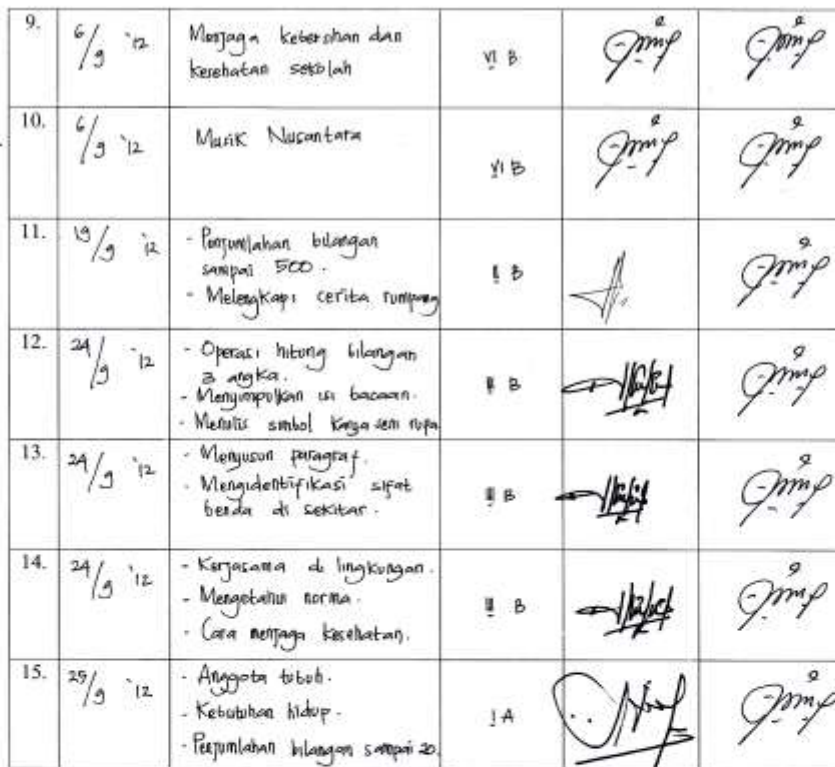 9. 6/9 '12 Menjaga kebersihan dan VI B
kesehatan sekolah
10. 6/9 '12 Musik Nusantara VI B
11. 19/9 '12 - Penjumlahan bilangan B
sampai 500.
- Melengkapi cerita rumpang
12. 24/9 '12 - Operasi hitung bilangan B
3 angka.
- Menyimpulkan isi bacaan.
- Menulis simbol karya seni rupa.
13. 24/9 '12 - Menyusun paragraf. III B
- Mengidentifikasi sifat
benda di sekitar.
14. 24/9 '12 - Kerjasama di lingkungan. III B
- Mengetahui norma.
- Cara menjaga kesehatan.
15. 25/9 '12 - Anggota tubuh. I A
- Kebutuhan hidup.
- Penjumlahan bilangan sampai 20.